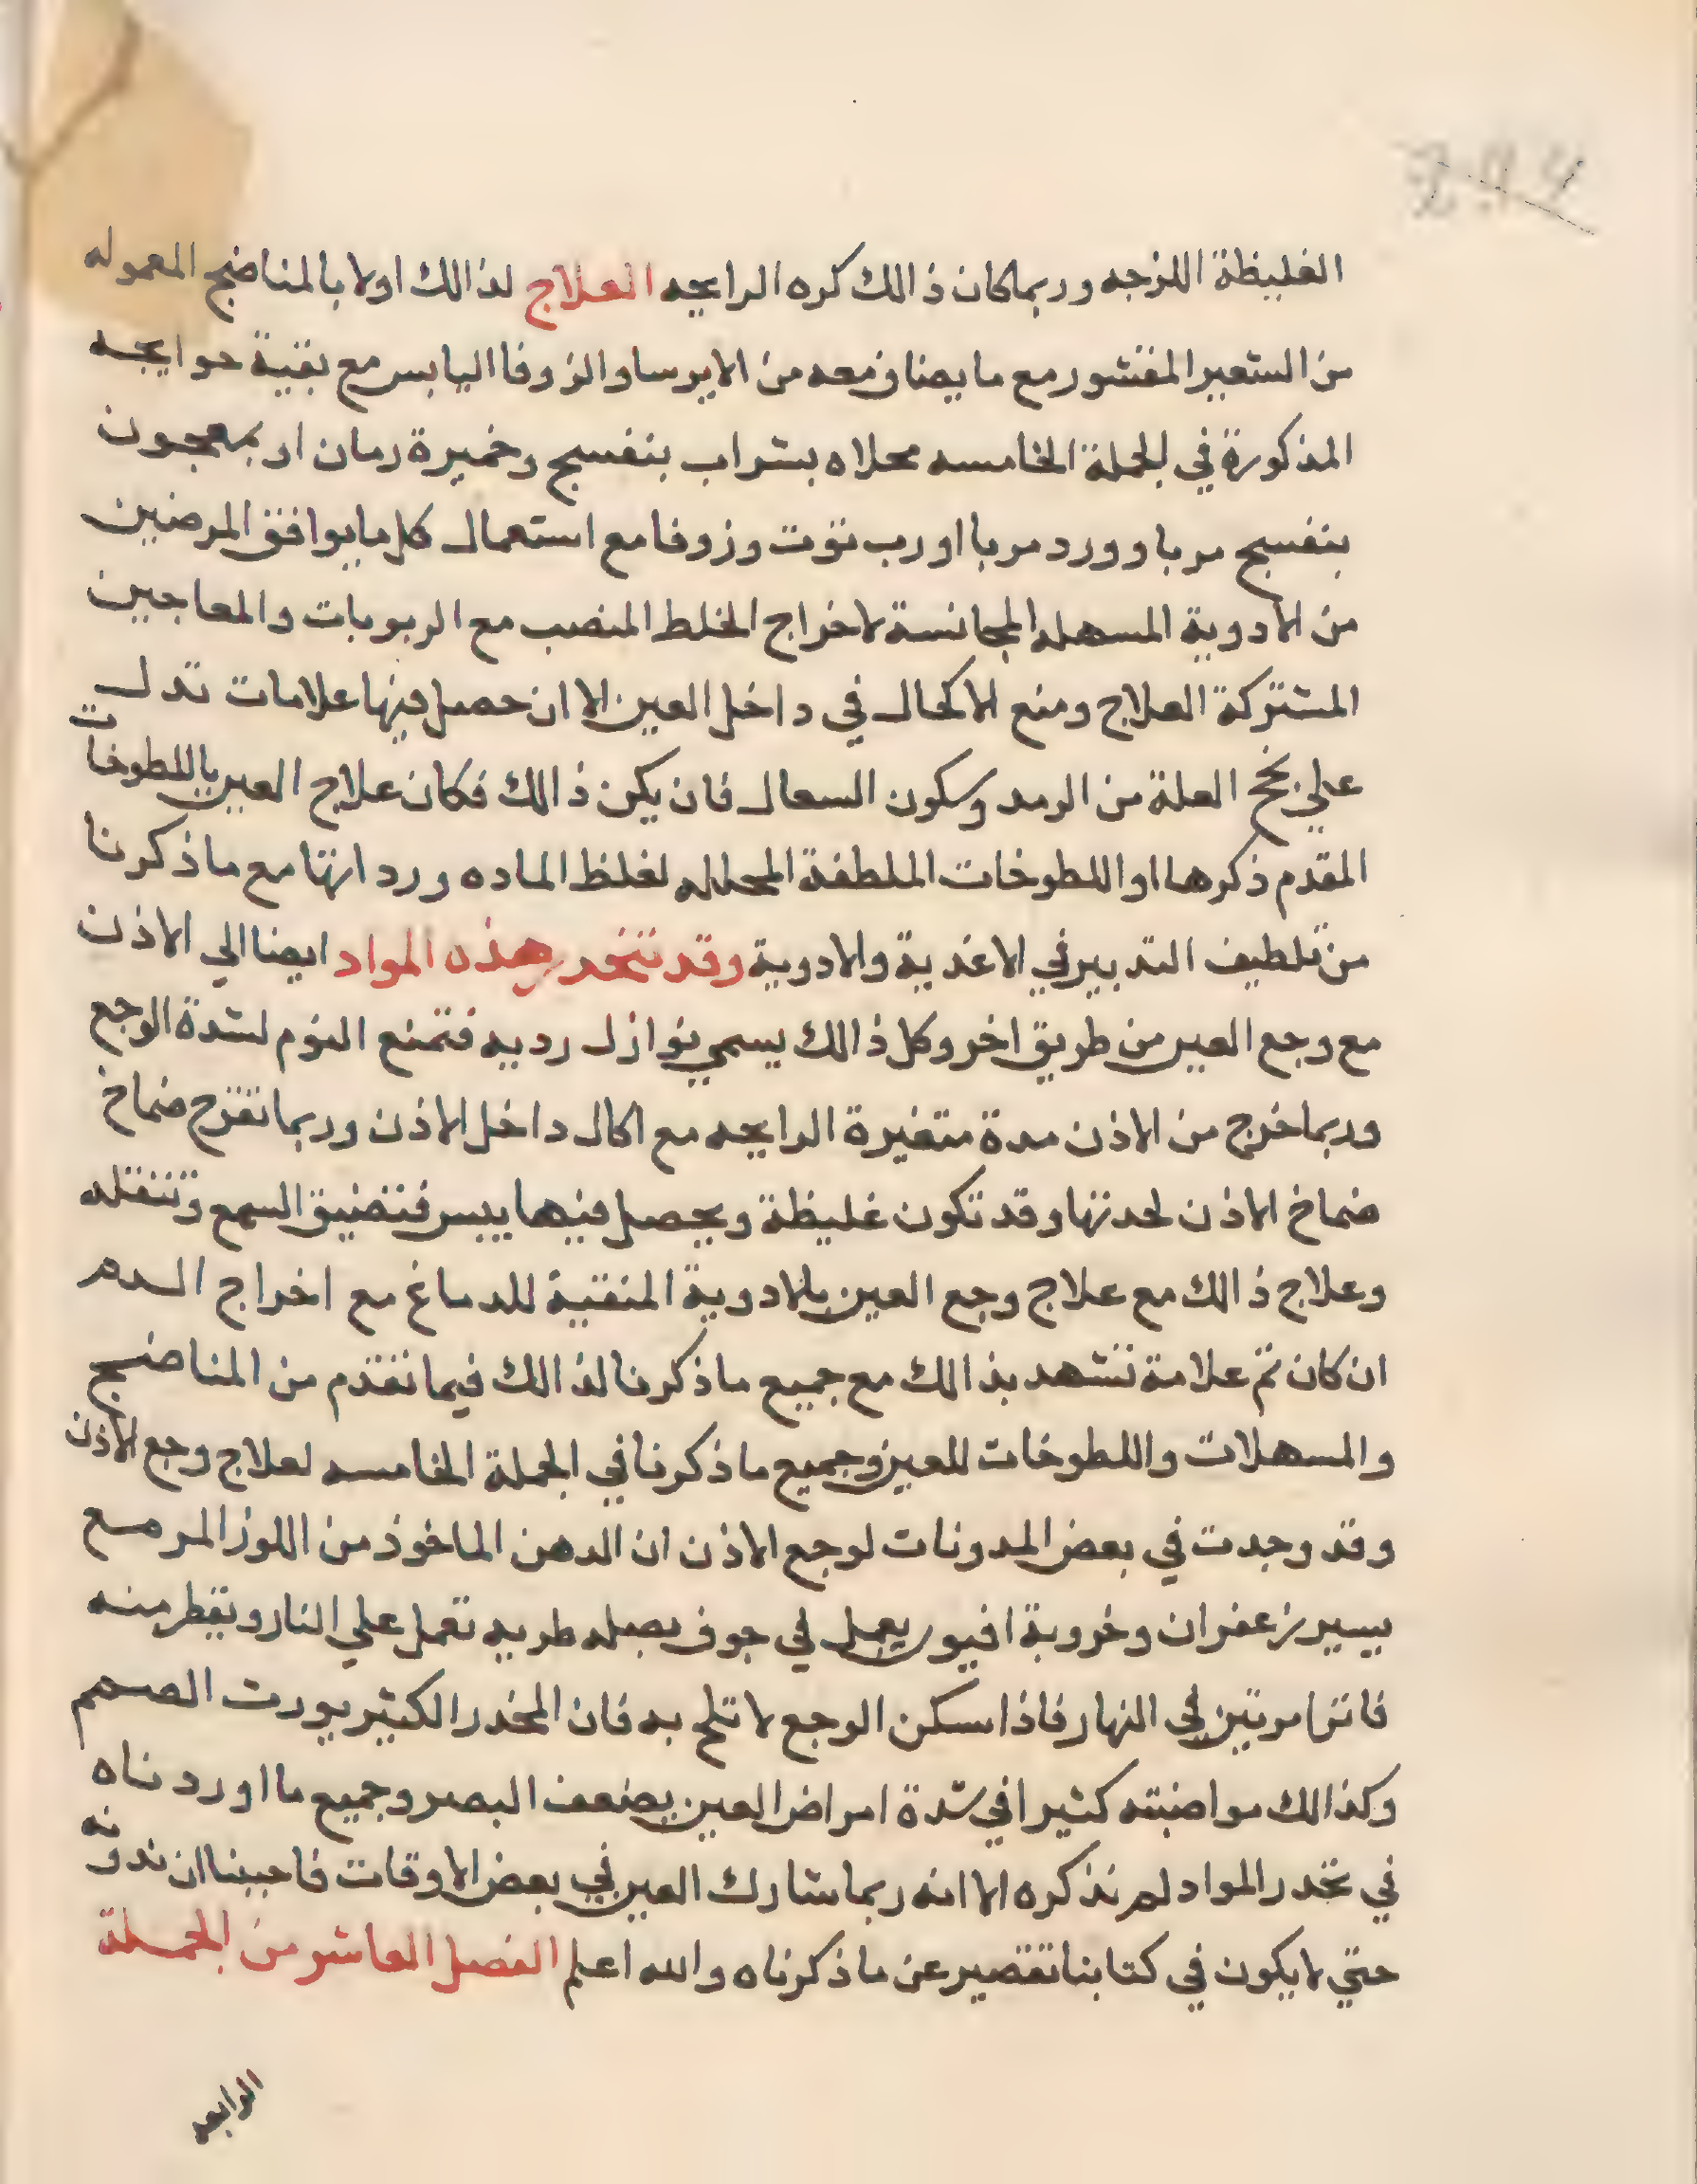 الغليظة اللزجه وربما كان ذالك كره الرايحه العلاج لذالك اولا بالمناضج المعموله
من الشعير المقشور مع ما يضاف معه من الايرسا والزوفا اليابس مع بقية حوايجه
المذكورة في الجملة الخامسه محلاه بشراب بنفسج وخميرة رمان او بمعجون
بنفسج مربا وورد مربا اورب توت وزوفا مع استعمال كل ما يوافق المرضين
من الادوية المسهله المجانسة لاخراج الخلط المنصب مع الربوبات والمعاجين
المشتركة العلاج ومنع الاكحال في داخل العين الا ان حصل فيها علامات تدل
علي نجح العلة من الرمد وسكون السعال فان يكن ذالك فكان علاج العين باللطوخات
المقدم ذكرها او اللطوخات الملطفة المحلله لغلظ الماده ورداتها مع ما ذكرنا
من تلطيف التدبير في الاغذية والادوية وقد تنحدر هذه المواد ايضا الي الاذن
مع وجع العين من طريق اخر وكل ذالك يسمي نوازل رديه فتمنع النوم لشدة الوجع
وربما خرج من الاذن مدة متغيرة الرايحه مع اكال داخل الاذن وربما تقرح ضماخ
ضماخ الاذن لحدتها وقد تكون غليظة ويحصل فيها يبس فتضيق السمع وتثقله
وعلاج ذالك مع علاج وجع العين بالادوية المنقية للدماغ مع اخراج الدم
ان كان تم علامة تشهد بذالك مع جميع ما ذكرنا لذالك فيما تقدم من المناضج
والمسهلات واللطوخات للعين وجميع ما ذكرنا في الجملة الخامسه لعلاج وجع الاذن
وقد وجدت في بعض المدونات لوجع الاذن ان الدهن الماخوذ من اللوز المر مع
يسير زعفران وخروبة افيون يعمل في جوف بصله طريه تعمل علي النار ويقطر منه
فاترا مرتين في النهار فاذا سكن الوجع لا تلح به فان المخدر الكثير يورت الصمم
وكذالك مواضبته كثيرا في شدة امراض العين يضعف البصر وجميع ما اوردناه
في تحدر المواد لم نذكره الا انه ربما شارك العين في بعض الاوقات فاحببنا ان ندونه
حتي لا يكون في كتابنا تقصير عن ما ذكرناه والله اعلم الفصل العاشر من الجملة
الرابعه